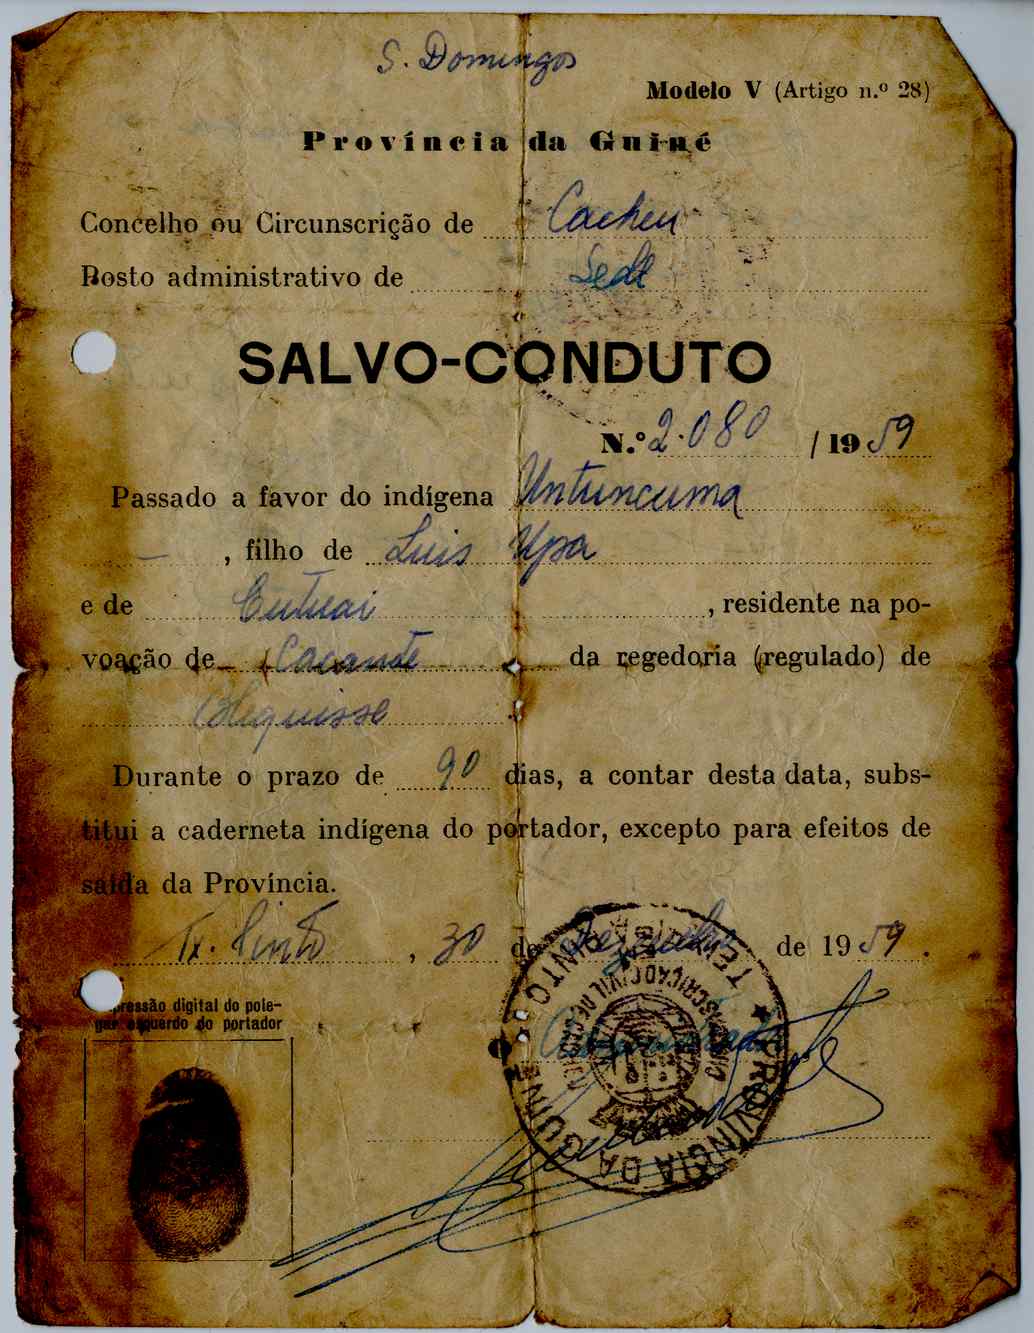 S. Domingos
Modelo V (Artigo n.º 28)
Província da Guiné
Concelho ou Circunscrição de Cacheu
Posto administrativo de Sede
SALVO-CONDUTO
N.º 2.080 / 1959
Passado a favor do indígena Untuncuma
—, filho de Luis Upa
e de Cutuai, residente na po-
voação de Cacante da regedoria (regulado) de
Blequisse
Durante o prazo de 90 dias, a contar desta data, subs-
titui a caderneta indígena do portador, excepto para efeitos de
saída da Província.
Tx. Pinto, 30 de Dezembro de 1959.
pressão digital do pole-
gar esquerdo do portador
O Administrador
PROVÍNCIA DA GUINÉ
TEIXEIRA PINTO
CIRCUNSCRIÇÃO CIVIL DE CACHEU